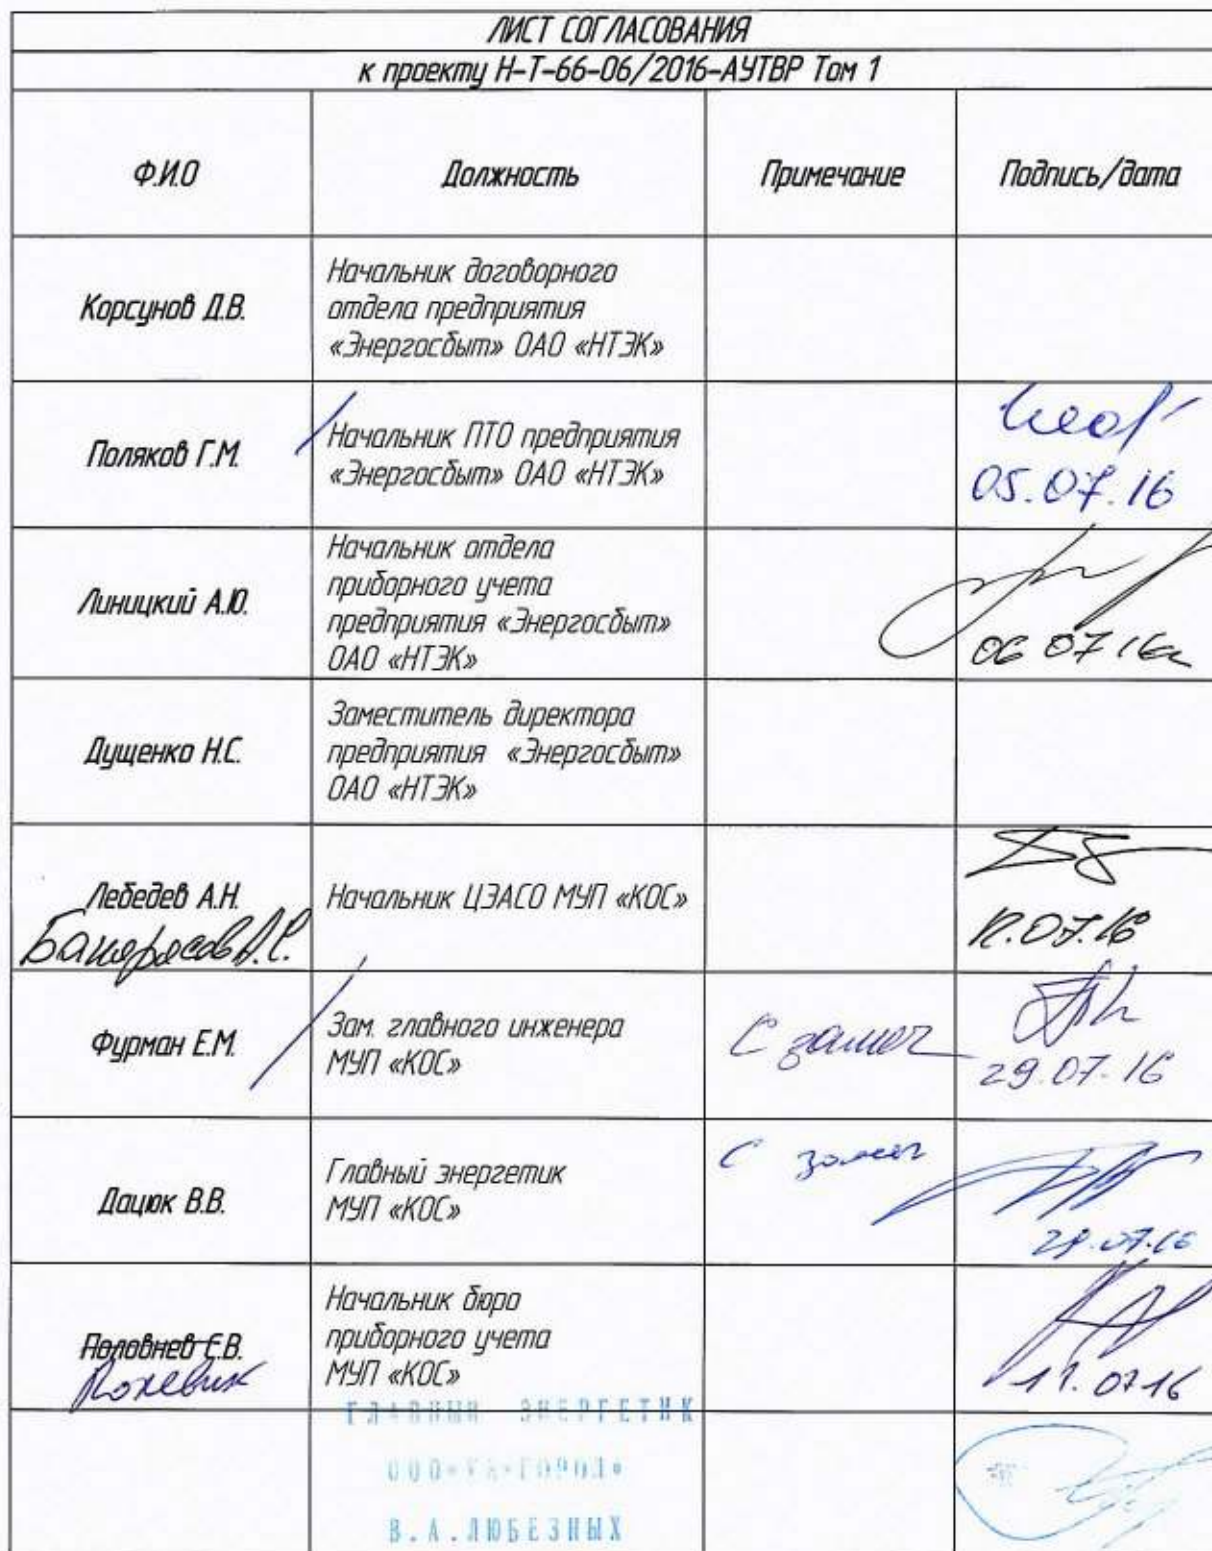 ЛИСТ СОГЛАСОВАНИЯ
к проекту Н-Т-66-06/2016-АУТВР Том 1
Ф.И.О Должность Примечание Подпись/дата
Корсунов Д.В.
Начальник договорного
отдела предприятия
«Энергосбыт» ОАО «НТЭК»
Поляков Г.М.
Начальник ПТО предприятия
«Энергосбыт» ОАО «НТЭК»
05.07.16
Линицкий А.Ю.
Начальник отдела
приборного учета
предприятия «Энергосбыт»
ОАО «НТЭК»
06 07 16г
Дущенко Н.С.
Заместитель директора
предприятия «Энергосбыт»
ОАО «НТЭК»
Лебедев А.Н.
Начальник ЦЭАСО МУП «КОС»
12.07.16
Фурман Е.М.
Зам. главного инженера
МУП «КОС»
С замеч
29.07.16
Дацюк В.В.
Главный энергетик
МУП «КОС»
С замеч
Половнев Е.В.
Начальник бюро
приборного учета
МУП «КОС»
11.07.16
ГЛАВНЫЙ ЭНЕРГЕТИК
ООО «УК «ГОРОД»
В.А.ЛЮБЕЗНЫХ